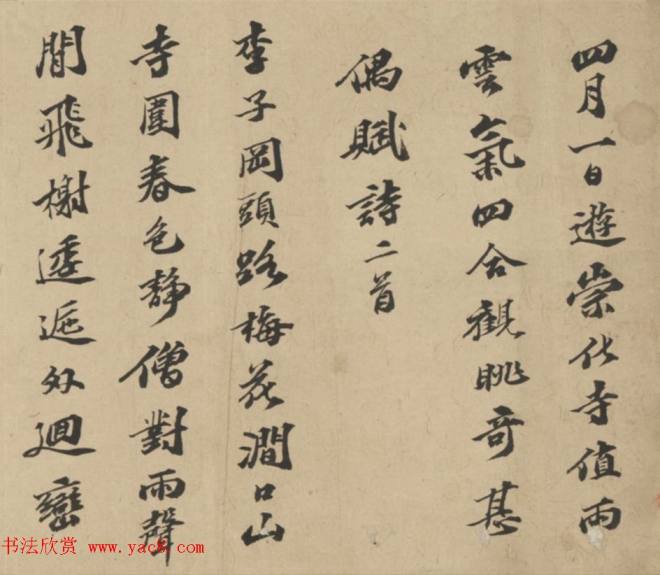 四月一日遊崇化寺值雨
雲氣四合觀眺奇甚
偶賦詩二首
李子岡頭路梅花澗口山
寺園春色靜僧對雨聲
閒飛榭透迤外迴巒
书法欣赏 www.yac8.com